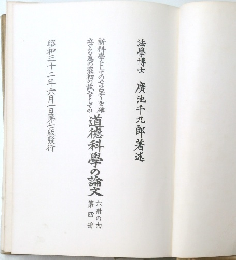 法學博士 廣池千九郎著述
新科學としてのモラロヂーを確
立する為の最初の試みとしての
道德科學の論文
六冊の内
第四冊
昭和三十二年六月一日第七版發行